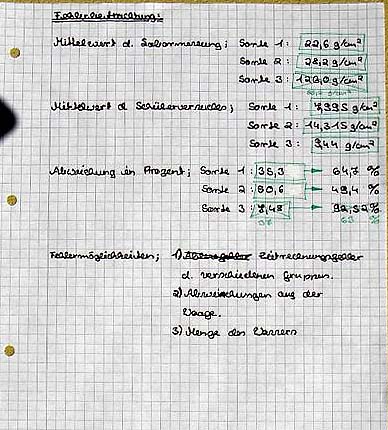 Fehlerbetrachtung:
Mittelwert d. Labormessung; Sorte 1: 22,6 g/cm²
Sorte 2: 28,2 g/cm²
Sorte 3: g/cm²
Mittelwert d. Schülerversuches; Sorte 1: 7,995 g/cm²
Sorte 2: 14,315 g/cm²
Sorte 3: 9,44 g/cm²
Abweichung in Prozent; Sorte 1: 35,3 → 64,7 %
Sorte 2: 50,6 → 49,4 %
Sorte 3: 7,48 → 92,52 %
37 63 %
Fehlermöglichkeiten; 1) Zeitrechnungsfehler
d. verschiedenen Gruppen.
2) Abweichungen aus der
Waage.
3) Menge des Wassers